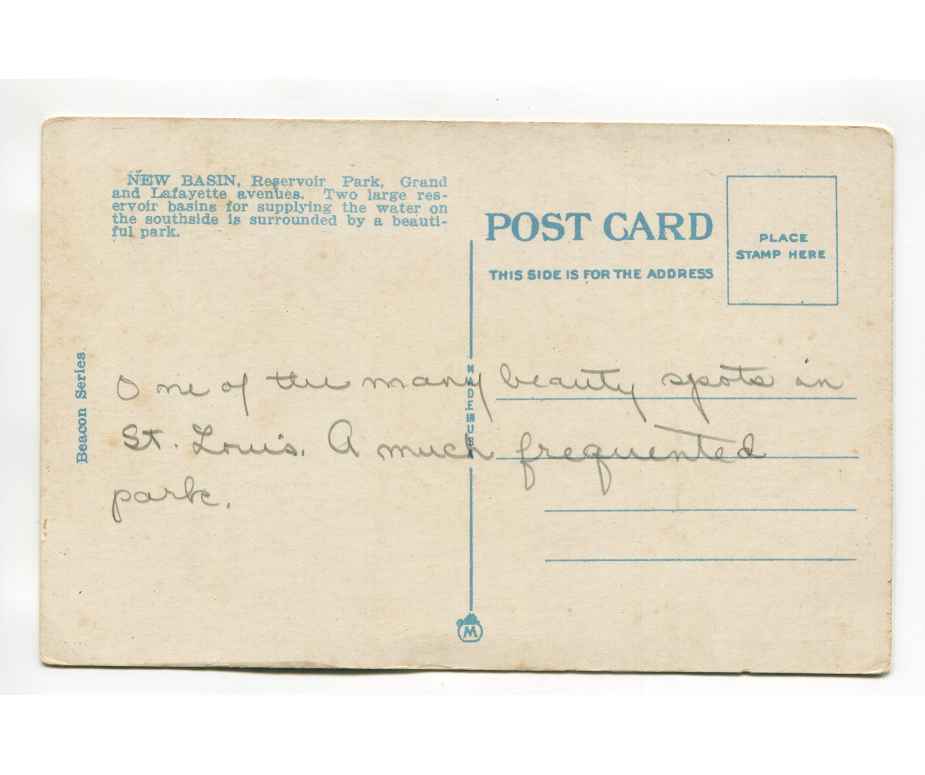 NEW BASIN, Reservoir Park, Grand
and Lafayette avenues. Two large res-
ervoir basins for supplying the water on
the southside is surrounded by a beauti-
ful park.
POST CARD
THIS SIDE IS FOR THE ADDRESS
PLACE
STAMP HERE
Beacon Series.
MADE IN U.S.A.
One of the many beauty spots in
St. Louis. A much frequented
park.
M